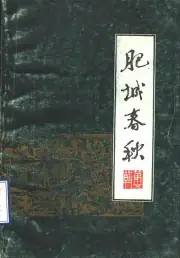 肥城春秋